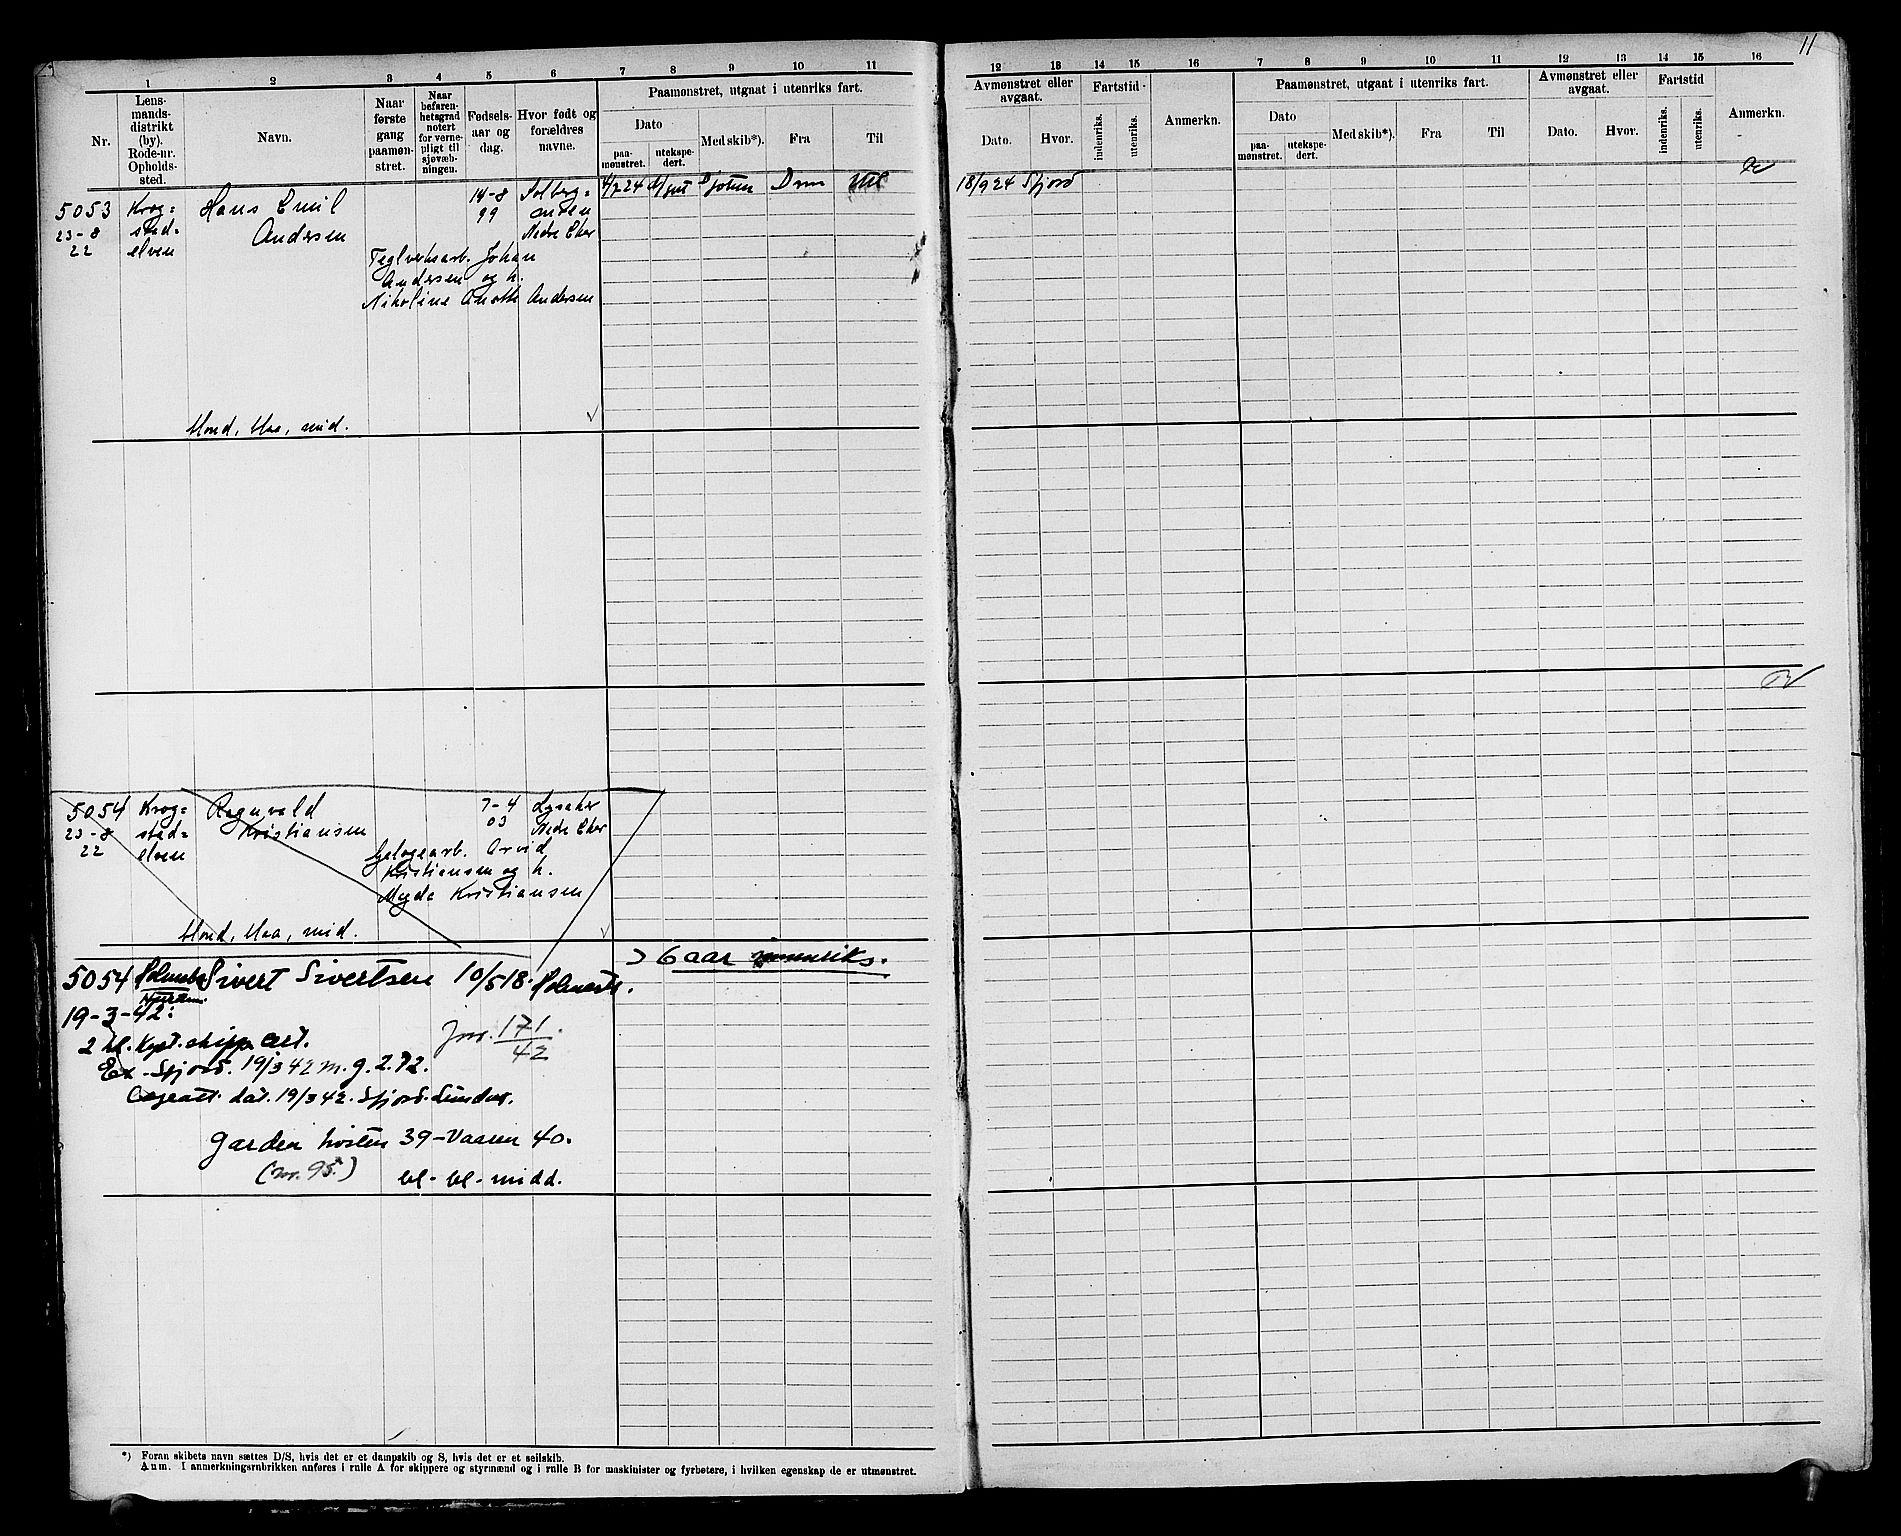 11
1 2 3 4 5 6 7 8 9 10 11
Nr.
Lens-
mands-
distrikt
(by).
Rode-nr.
Opholds-
sted.
Navn.
Naar
første
gang
paamøn-
stret.
Naar
befaren-
hetsgrad
notert
for verne-
pligt til
sjøvæb-
ningen.
Fødsels-
aar og
dag.
Hvor født og
forældres
navne.
Paamønstret, utgaat i utenriks fart.
Dato
paa-
mønstret.
utekspe-
dert.
Med skib*).
Fra
Til
12 13 14 15 16 7 8 9 10 11 12 13 14 15 16
Avmønstret eller
avgaat.
Dato.
Hvor.
Fartstid
indenriks.
utenriks.
Anmerkn.
Paamønstret, utgaat i utenriks fart.
Dato
paa-
mønstret.
utekspe-
dert.
Med skib*).
Fra
Til
Avmønstret eller
avgaat.
Dato.
Hvor.
Fartstid
indenriks.
utenriks.
Anmerkn.
5053
23-8
22
Krog=
stad=
elven
Hans Emil
Andersen
14-8
99
Solberg=
Nedre Eker
Teglverksarb. Johan
Andersen og h.
Nikoline Andersen
Drm
18/9 24 Sfjord
blond, blaa, mid.
5054
23-8
22
Krog=
stad=
elven
Ragnvald
Kristiansen
7-4
03
Lysaker
Nedre Eker
arb. Arvid
Kristiansen og h.
Kristiansen
blond, blaa, mid.
5054
Sivert Sivertsen 10/5 18.
> 6 aar
19-3-42:
2 kl. Kyst. skipp. cert.
Jnr. 171/42
Ex. Sfjord. 19/3 42 m. g. 2.72.
dat. 19/3 42. Sfjord.
Garden høsten 39 - Vaaren 40.
(nr. 95.)
bl - bl - midd.
*) Foran skibets navn sættes D/S, hvis det er et dampskib og S, hvis det er et seilskib.
Anm. I anmerkningsrubrikken anføres i rulle A for skippere og styrmænd og i rulle B for maskinister og fyrbøtere, i hvilken egenskap de er utmønstret.